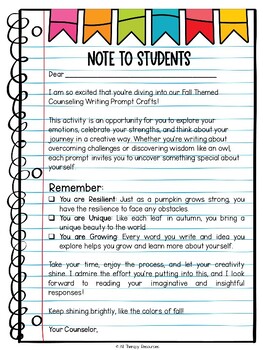 NOTE TO STUDENTS
Dear
I am so excited that you're diving into our Fall Themed
Counseling Writing Prompt Crafts!
This activity is an opportunity for you to explore your
emotions, celebrate your strengths, and think about your
journey in a creative way. Whether you're writing about
overcoming challenges or discovering wisdom like an owl,
each prompt invites you to uncover something special about
yourself.
Remember:
❑ You are Resilient: Just as a pumpkin grows strong, you
have the resilience to face any obstacles.
❑ You are Unique: Like each leaf in autumn, you bring a
unique beauty to the world.
❑ You are Growing: Every word you write and idea you
explore helps you grow and learn more about yourself.
Take your time, enjoy the process, and let your creativity
shine. I admire the effort you're putting into this, and I look
forward to reading your imaginative and insightful
responses!
Keep shining brightly, like the colors of fall!
Your Counselor,
© All Therapy Resources